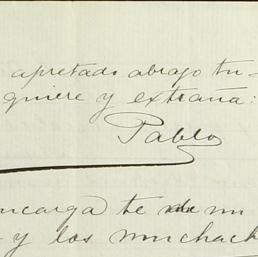 apretado abrazo tu
quiere y extraña:
Pablo
encarga te de mi
y los muchach